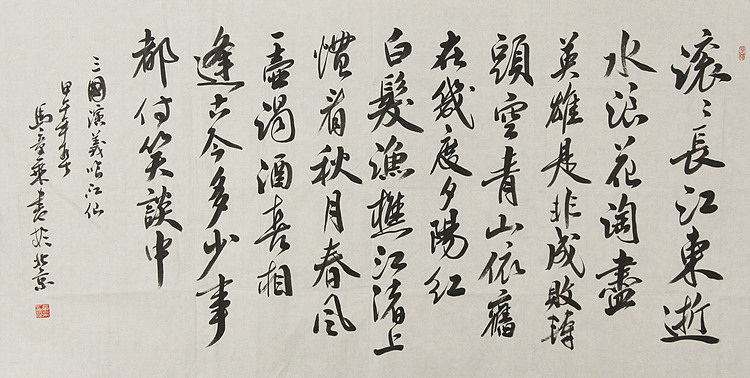 滚〻長江東逝
水浪花淘盡
英雄是非成敗轉
頭空青山依舊
在幾度夕陽紅
白髮漁樵江渚上
慣看秋月春風
一壺濁酒喜相
逢古今多少事
都付笑談中
三國演義臨江仙
甲午年
馬書於北京